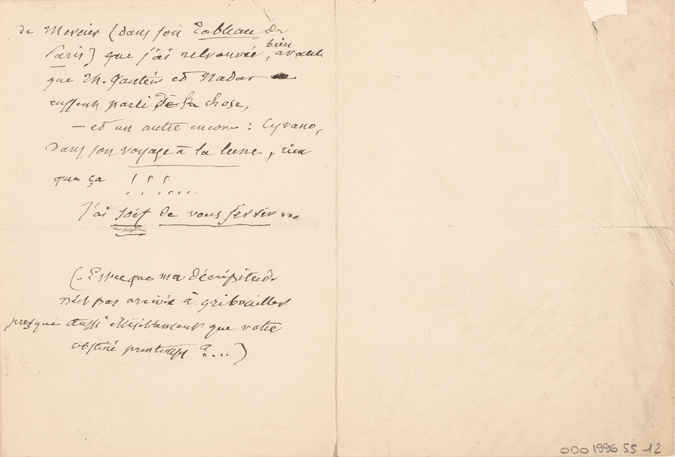 de Mercier (dans son Tableau de
Paris) que j'ai retrouvée, bien avant
que Th. Gautier et Nadar
eussent parlé de la chose,
— et un autre encore : Cyrano,
dans son voyage à la lune, rien
que ça ! ! !
J'ai soif de vous serrer...
(Est-ce que ma décrépitude
n'est pas arrivée à gribouiller
presque aussi illisiblement que votre
obstiné printemps ?...)
ODO 1996 55 12